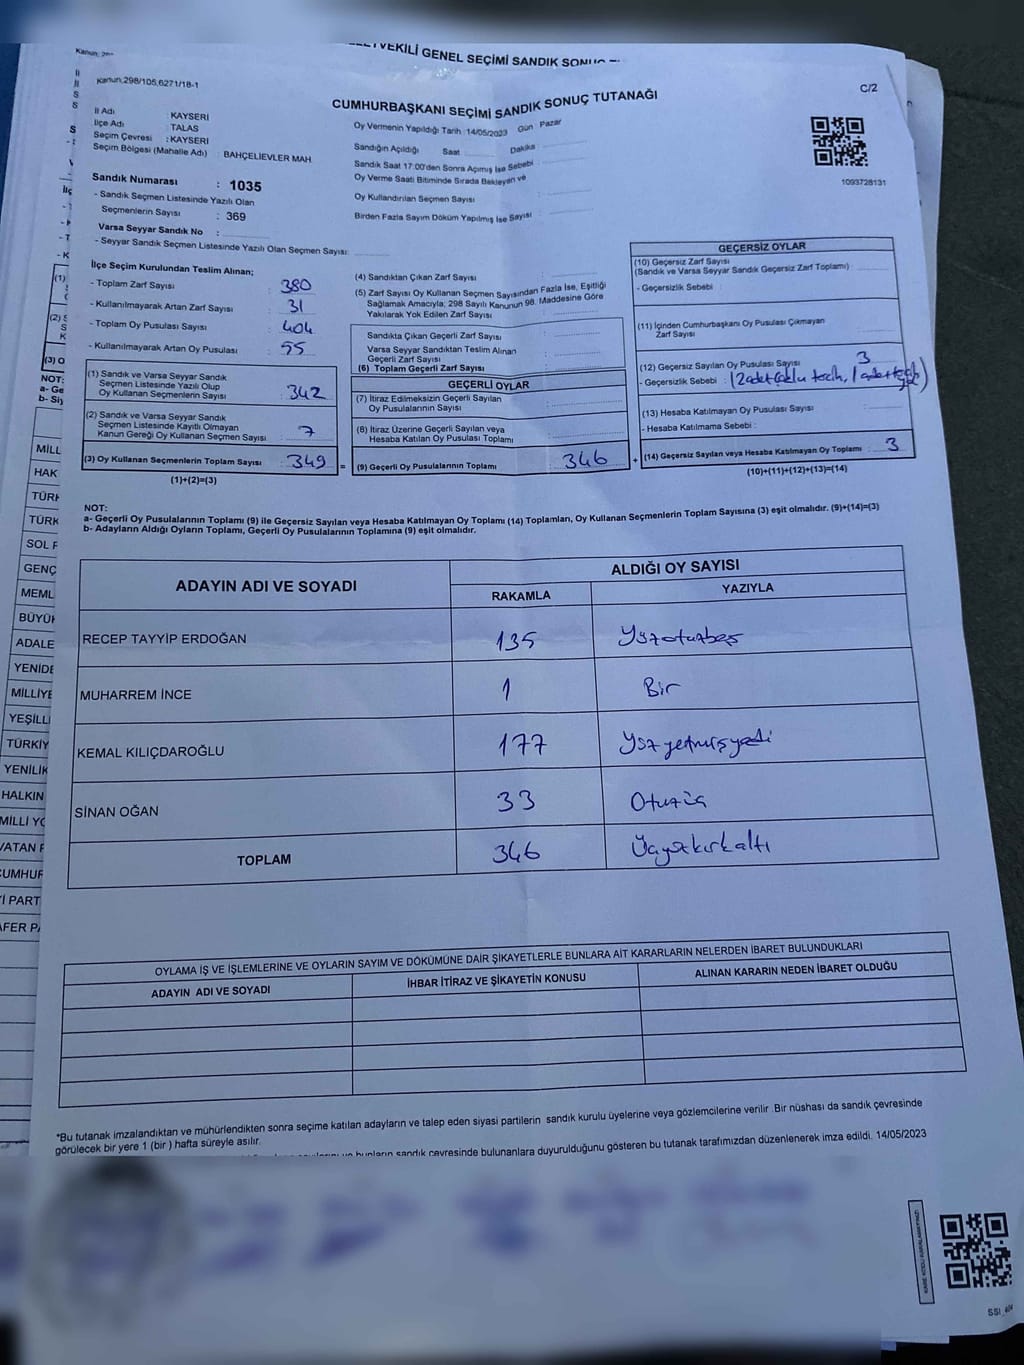 LETVEKİLİ GENEL SEÇİMİ SANDIK SONUÇ
Kanun.298/105,6271/18-1
C/2
CUMHURBAŞKANI SEÇİMİ SANDIK SONUÇ TUTANAĞI
İl Adı : KAYSERİ
İlçe Adı : TALAS
Seçim Çevresi : KAYSERİ
Seçim Bölgesi (Mahalle Adı) : BAHÇELİEVLER MAH
Oy Vermenin Yapıldığı Tarih :14/05/2023 Gün Pazar
Sandığın Açıldığı Saat Dakika
Sandık Saat 17:00'den Sonra Açımış İse Sebebi
Oy Verme Saati Bitiminde Sırada Bekleyen ve
Oy Kullandırılan Seçmen Sayısı :
Birden Fazla Sayım Döküm Yapılmış İse Sayısı :
1093728131
Sandık Numarası : 1035
- Sandık Seçmen Listesinde Yazılı Olan
Seçmenlerin Sayısı : 369
Varsa Seyyar Sandık No :
- Seyyar Sandık Seçmen Listesinde Yazılı Olan Seçmen Sayısı:
İlçe Seçim Kurulundan Teslim Alınan;
- Toplam Zarf Sayısı : 380
- Kullanılmayarak Artan Zarf Sayısı : 31
- Toplam Oy Pusulası Sayısı : 404
- Kullanılmayarak Artan Oy Pusulası : 55
(1) Sandık ve Varsa Seyyar Sandık
Seçmen Listesinde Yazılı Olup
Oy Kullanan Seçmenlerin Sayısı : 342
(2) Sandık ve Varsa Seyyar Sandık
Seçmen Listesinde Kayıtlı Olmayan
Kanun Gereği Oy Kullanan Seçmen Sayısı : 7
(3) Oy Kullanan Seçmenlerin Toplam Sayısı : 349 =
(1)+(2)=(3)
(4) Sandıktan Çıkan Zarf Sayısı :
(5) Zarf Sayısı Oy Kullanan Seçmen Sayısından Fazla İse, Eşitliği
Sağlamak Amacıyla; 298 Sayılı Kanunun 98. Maddesine Göre
Yakılarak Yok Edilen Zarf Sayısı :
Sandıkta Çıkan Geçerli Zarf Sayısı :
Varsa Seyyar Sandıktan Teslim Alınan
Geçerli Zarf Sayısı :
(6) Toplam Geçerli Zarf Sayısı :
GEÇERLİ OYLAR
(7) İtiraz Edilmeksizin Geçerli Sayılan
Oy Pusulalarının Sayısı :
(8) İtiraz Üzerine Geçerli Sayılan veya
Hesaba Katılan Oy Pusulası Toplamı :
(9) Geçerli Oy Pusulalarının Toplamı : 346 +
GEÇERSİZ OYLAR
(10) Geçersiz Zarf Sayısı
(Sandık ve Varsa Seyyar Sandık Geçersiz Zarf Toplamı) :
- Geçersizlik Sebebi :
(11) İçinden Cumhurbaşkanı Oy Pusulası Çıkmayan
Zarf Sayısı :
(12) Geçersiz Sayılan Oy Pusulası Sayısı : 3
- Geçersizlik Sebebi : (2 adet çoklu tercih, 1 adet
(13) Hesaba Katılmayan Oy Pusulası Sayısı :
- Hesaba Katılmama Sebebi :
(14) Geçersiz Sayılan veya Hesaba Katılmayan Oy Toplamı : 3
(10)+(11)+(12)+(13)=(14)
NOT:
a- Geçerli Oy Pusulalarının Toplamı (9) ile Geçersiz Sayılan veya Hesaba Katılmayan Oy Toplamı (14) Toplamları, Oy Kullanan Seçmenlerin Toplam Sayısına (3) eşit olmalıdır. (9)+(14)=(3)
b- Adayların Aldığı Oyların Toplamı, Geçerli Oy Pusulalarının Toplamına (9) eşit olmalıdır.
ADAYIN ADI VE SOYADI
ALDIĞI OY SAYISI
RAKAMLA YAZIYLA
RECEP TAYYİP ERDOĞAN 135 Yüzotuzbeş
MUHARREM İNCE 1 Bir
KEMAL KILIÇDAROĞLU 177 Yüzyetmişyedi
SİNAN OĞAN 33 Otuzüç
TOPLAM 346 Üçyüzkırkaltı
OYLAMA İŞ VE İŞLEMLERİNE VE OYLARIN SAYIM VE DÖKÜMÜNE DAİR ŞİKAYETLERLE BUNLARA AİT KARARLARIN NELERDEN İBARET BULUNDUKLARI
ADAYIN ADI VE SOYADI İHBAR İTİRAZ VE ŞİKAYETİN KONUSU ALINAN KARARIN NEDEN İBARET OLDUĞU
*Bu tutanak imzalandıktan ve mühürlendikten sonra seçime katılan adayların ve talep eden siyasi partilerin sandık kurulu üyelerine veya gözlemcilerine verilir .Bir nüshası da sandık çevresinde
görülecek bir yere 1 (bir ) hafta süreyle asılır.
bunların sandık çevresinde bulunanlara duyurulduğunu gösteren bu tutanak tarafımızdan düzenlenerek imza edildi. 14/05/2023
MİLL
HAK
TÜRK
TÜRK
SOL F
GENÇ
MEML
BÜYÜK
ADALE
YENİDE
MİLLİYE
YEŞİLL
TÜRKİY
YENİLİK
HALKIN
MİLLİ YO
VATAN F
CUMHUR
İ PART
AFER PA